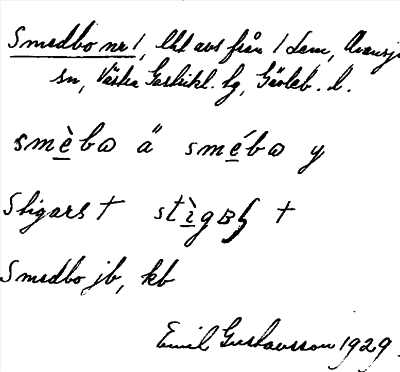 Smedbo nr 1, lht avs från 1 Lem, Ovansjö
sn, Västra Gästrikl. hg, Gävleb. l.
smèbω ä smébω y
Stigars † stìgaʂ †
Smedbo jb, kb
Emil Gustavsson 1929.